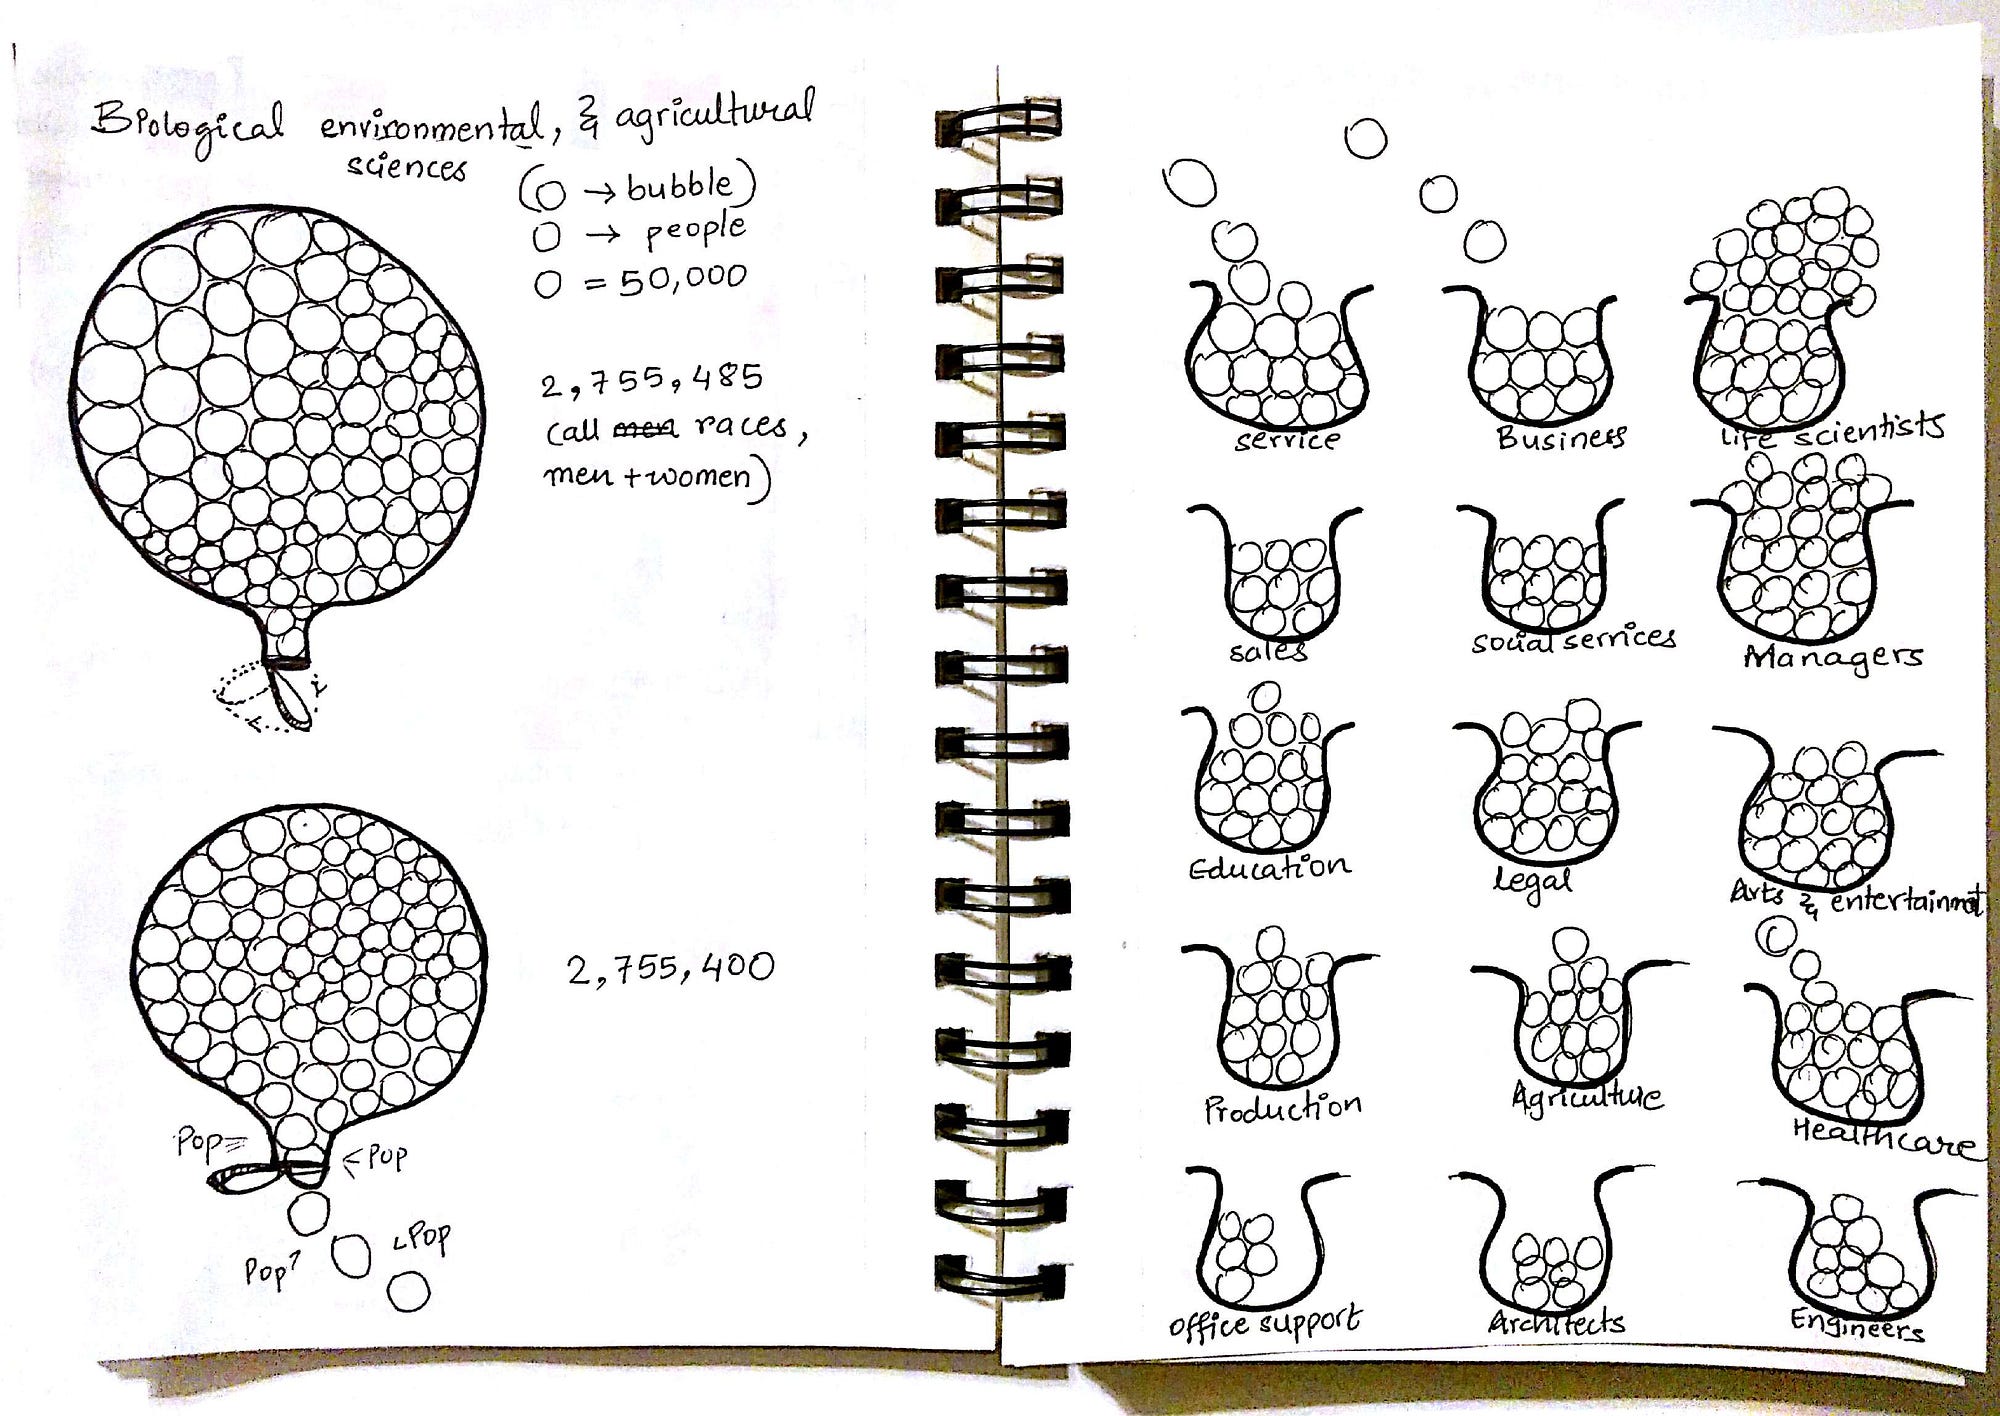 Biological environmental, & agricultural
sciences
(O → bubble)
O → people
O = 50,000
2,755,485
(all men races,
men + women)
2,755,400
Pop
Pop
Pop
Pop
service
Business
Life scientists
sales
social services
Managers
Education
Legal
Arts & entertainmet
Production
Agriculture
Healthcare
office support
Architects
Engineers